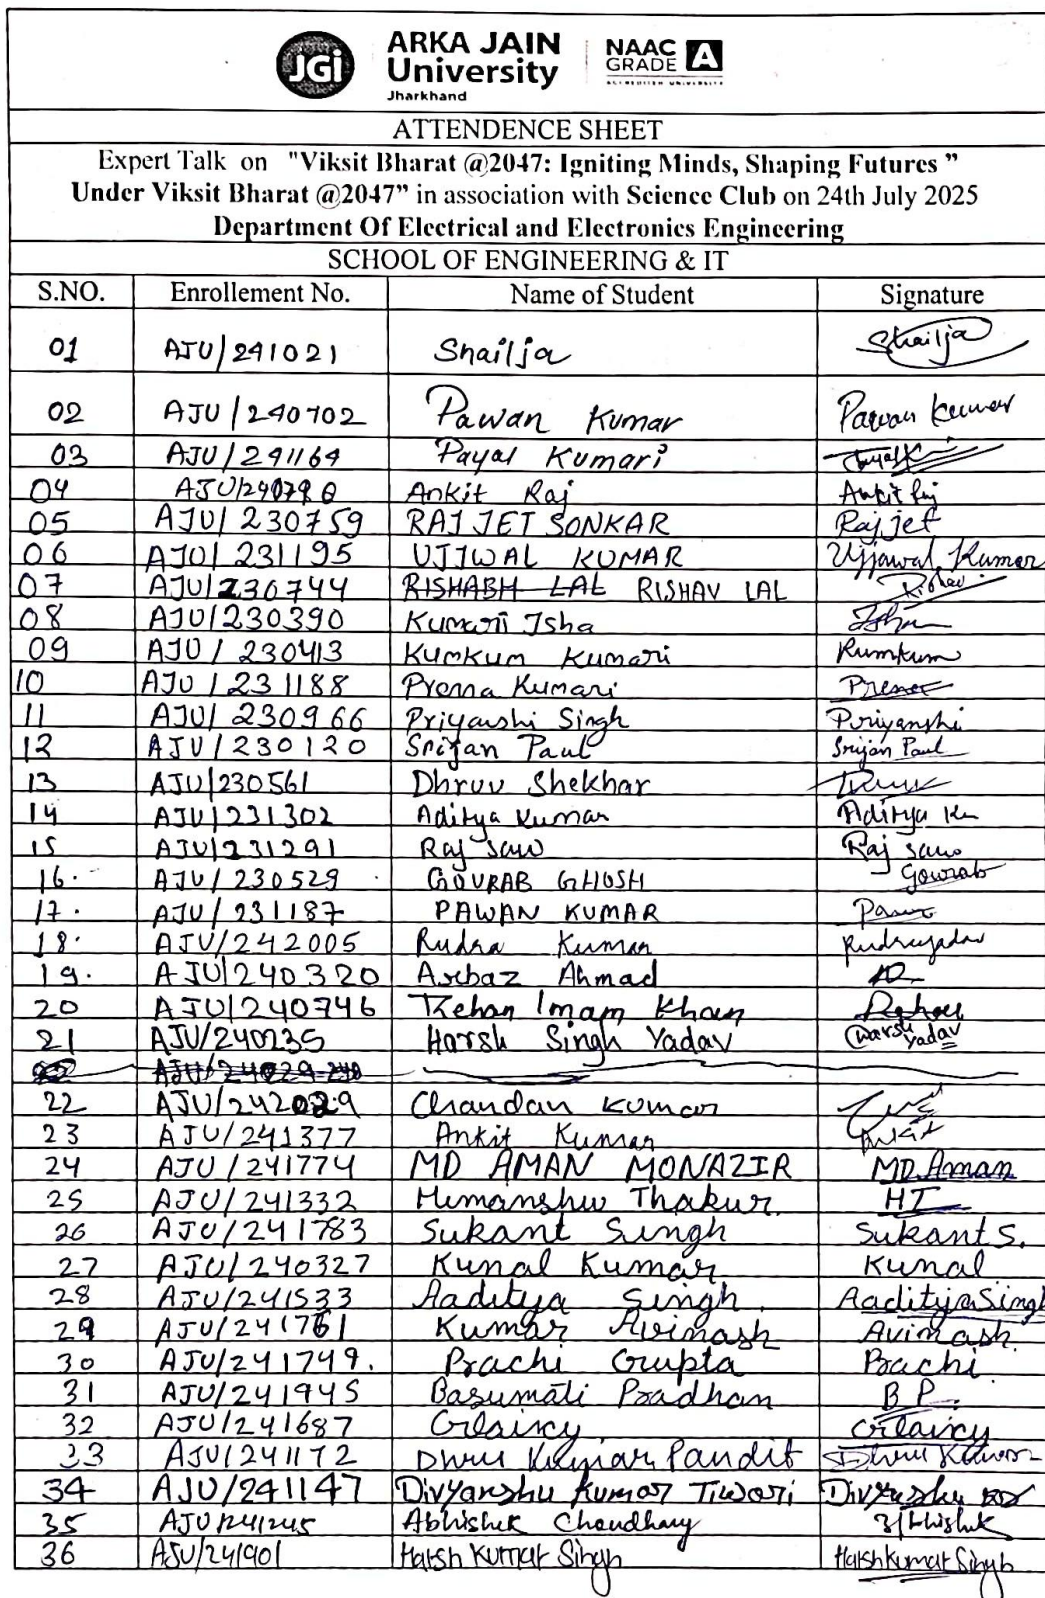 JGi ARKA JAIN University Jharkhand NAAC GRADE A ACCREDITED UNIVERSITY
ATTENDENCE SHEET
Expert Talk on "Viksit Bharat @2047: Igniting Minds, Shaping Futures ”
Under Viksit Bharat @2047” in association with Science Club on 24th July 2025
Department Of Electrical and Electronics Engineering
SCHOOL OF ENGINEERING & IT
S.NO. Enrollement No. Name of Student Signature
01 AJU/241021 Shailja Shailja
02 AJU/240702 Pawan Kumar Pawan Kumar
03 AJU/241164 Payal Kumari
04 Ankit Raj Ankit Raj
05 AJU/230759 RAJ JET SONKAR Rajjet
06 AJU/231195 UJJWAL KUMAR Ujjawal Kumar
07 AJU/230744 RISHABH LAL RISHAV LAL Rishav
08 AJU/230390 Kumari Isha Isha
09 AJU/230413 Kumkum Kumari Kumkum
10 AJU/231188 Prerna Kumari
11 AJU/230966 Priyanshi Singh Priyanshi
12 AJU/230120 Srijan Paul Srijan Paul
13 AJU/230561 Dhruv Shekhar
14 AJU/231302 Aditya Kumar Aditya Ku
15 AJU/231291 Raj Saw Raj saw
16. AJU/230529 GOURAB GHOSH Gourab
17. AJU/231187 PAWAN KUMAR
18. AJU/242005 Rudra Kumar Rudrayadav
19. AJU/240320 Arbaz Ahmad
20 AJU/240746 Rehan Imam Khan Rehan
21 AJU/240235 Harsh Singh Yadav Harsh Yadav
22 AJU/242029 Chandan Kumar
23 AJU/241377 Ankit Kumar Ankit
24 AJU/241774 MD AMAN MONAZIR MD. Aman
25 AJU/241332 Himanshu Thakur. HT
26 AJU/241783 Sukant Singh Sukant S.
27 AJU/240327 Kunal Kumar Kunal
28 AJU/241533 Aaditya Singh. Aaditya Singh
29 AJU/241761 Kumar Avinash Avinash.
30 AJU/241749. Prachi Gupta Prachi
31 AJU/241945 Basumati Pradhan B P.
32 AJU/241687 Glaircy Glaircy
33 AJU/241172 Dhru Kumar Pandit Dhru Kumar
34 AJU/241147 Divyanshu Kumar Tiwari Divyanshu
35 AJU/241245 Abhishek Choudhary Abhishek
36 AJU/241901 Harsh Kumar Singh Harsh Kumar Singh